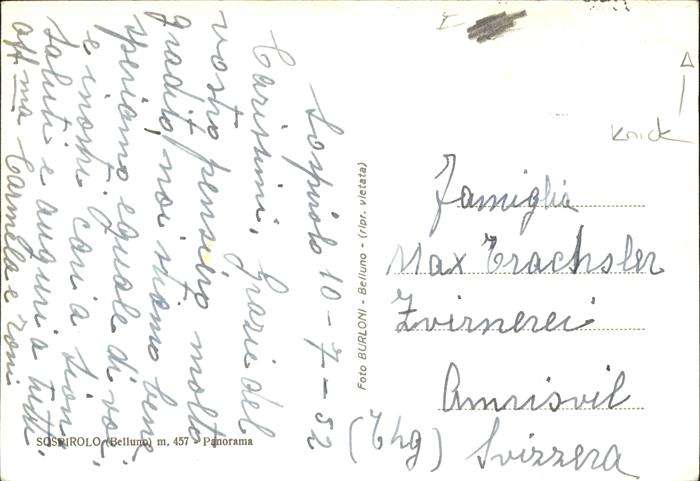 Sospirolo 10-7-52
Carissimi, Grazie del
vostro pensiero molto
gradito, noi stiamo bene
speriamo eguale di voi
e i nostri cari a Sion
saluti e auguri a tutti.
aff ma Carmela e Toni
SOSPIROLO (Belluno) m. 457 - Panorama
Foto BURLONI - Belluno - (ripr. vietata)
I
Knick
Famiglia
Max Trachsler
Zvirnerei
Amrisvil
(Thg) Svizzera